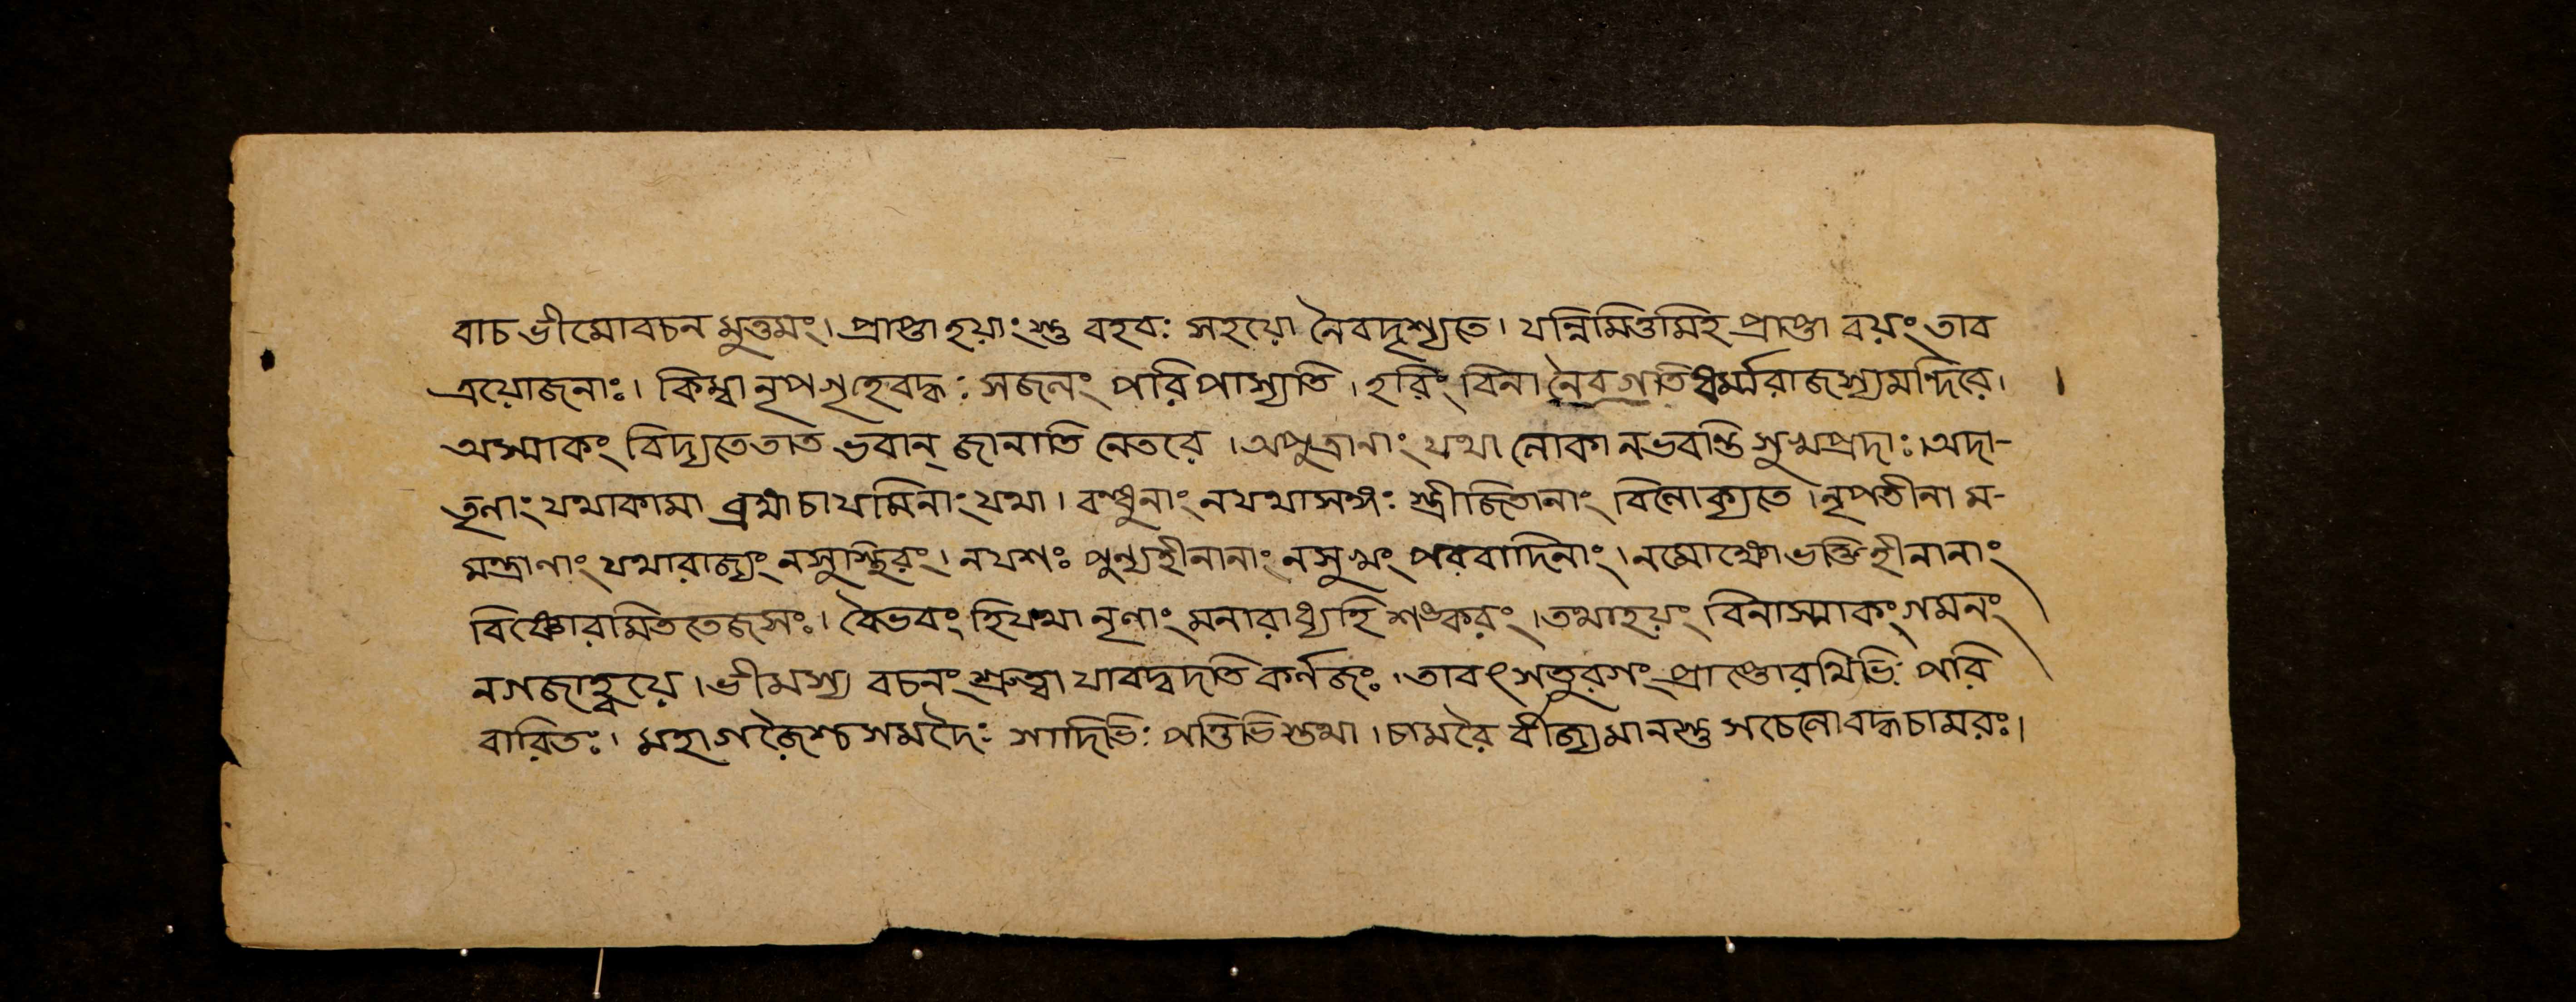 বাচ ভীমোবচন মুত্তমং। প্রাপ্তা হয়াংস্তু বহবঃ সহয়ো নৈবদৃশ্যতে। যন্নিমিত্তমিহ প্রাপ্তা বয়ং তাব
ত্রয়োজনাঃ। কিম্বা নৃপগৃহেবদ্ধঃ সজনং পরিপাস্যতি। হরিং বিনা নৈবগতিধর্ম্মরাজস্যমন্দিরে। ।
অস্মাকং বিদ্যতেতাত ভবান্ জানাতি নেতরে। অপুত্রানাং যথা লোকা নভবন্তি সুখপ্রদাঃ। অদা-
তৃনাং যথাকামা ব্রহ্মচাযমিনাং যথা। বন্ধুনাং নযথাসঙ্গঃ স্ত্রীজিতানাং বিলোক্যতে। নৃপতীনা ম-
মন্ত্রাণাং যথারাজ্যং নসুস্থিরং। নযশঃ পুন্যহীনানাং নসুখং পরবাদিনাং। নমোক্ষোভক্তিহীনানাং
বিষ্ণোরমিততেজসঃ। বৈভবং হিযথা নৃণাং মনারাধ্যহি শঙ্করং। তথাহয়ং বিনাস্মাকং গমনং
নগজাহ্বয়ে। ভীমস্য বচনং শ্রুত্বা যাবদ্বদতি কর্নজঃ। তাবৎ সতুরগং প্রাপ্তোরথিভিঃ পরি
বারিতঃ। মহাগজৈশ্চ সমদৈঃ সাদিভিঃ পত্তিভিস্তথা। চামরৈ র্বীজ্যমানস্তু সচেলোবদ্ধচামরঃ।